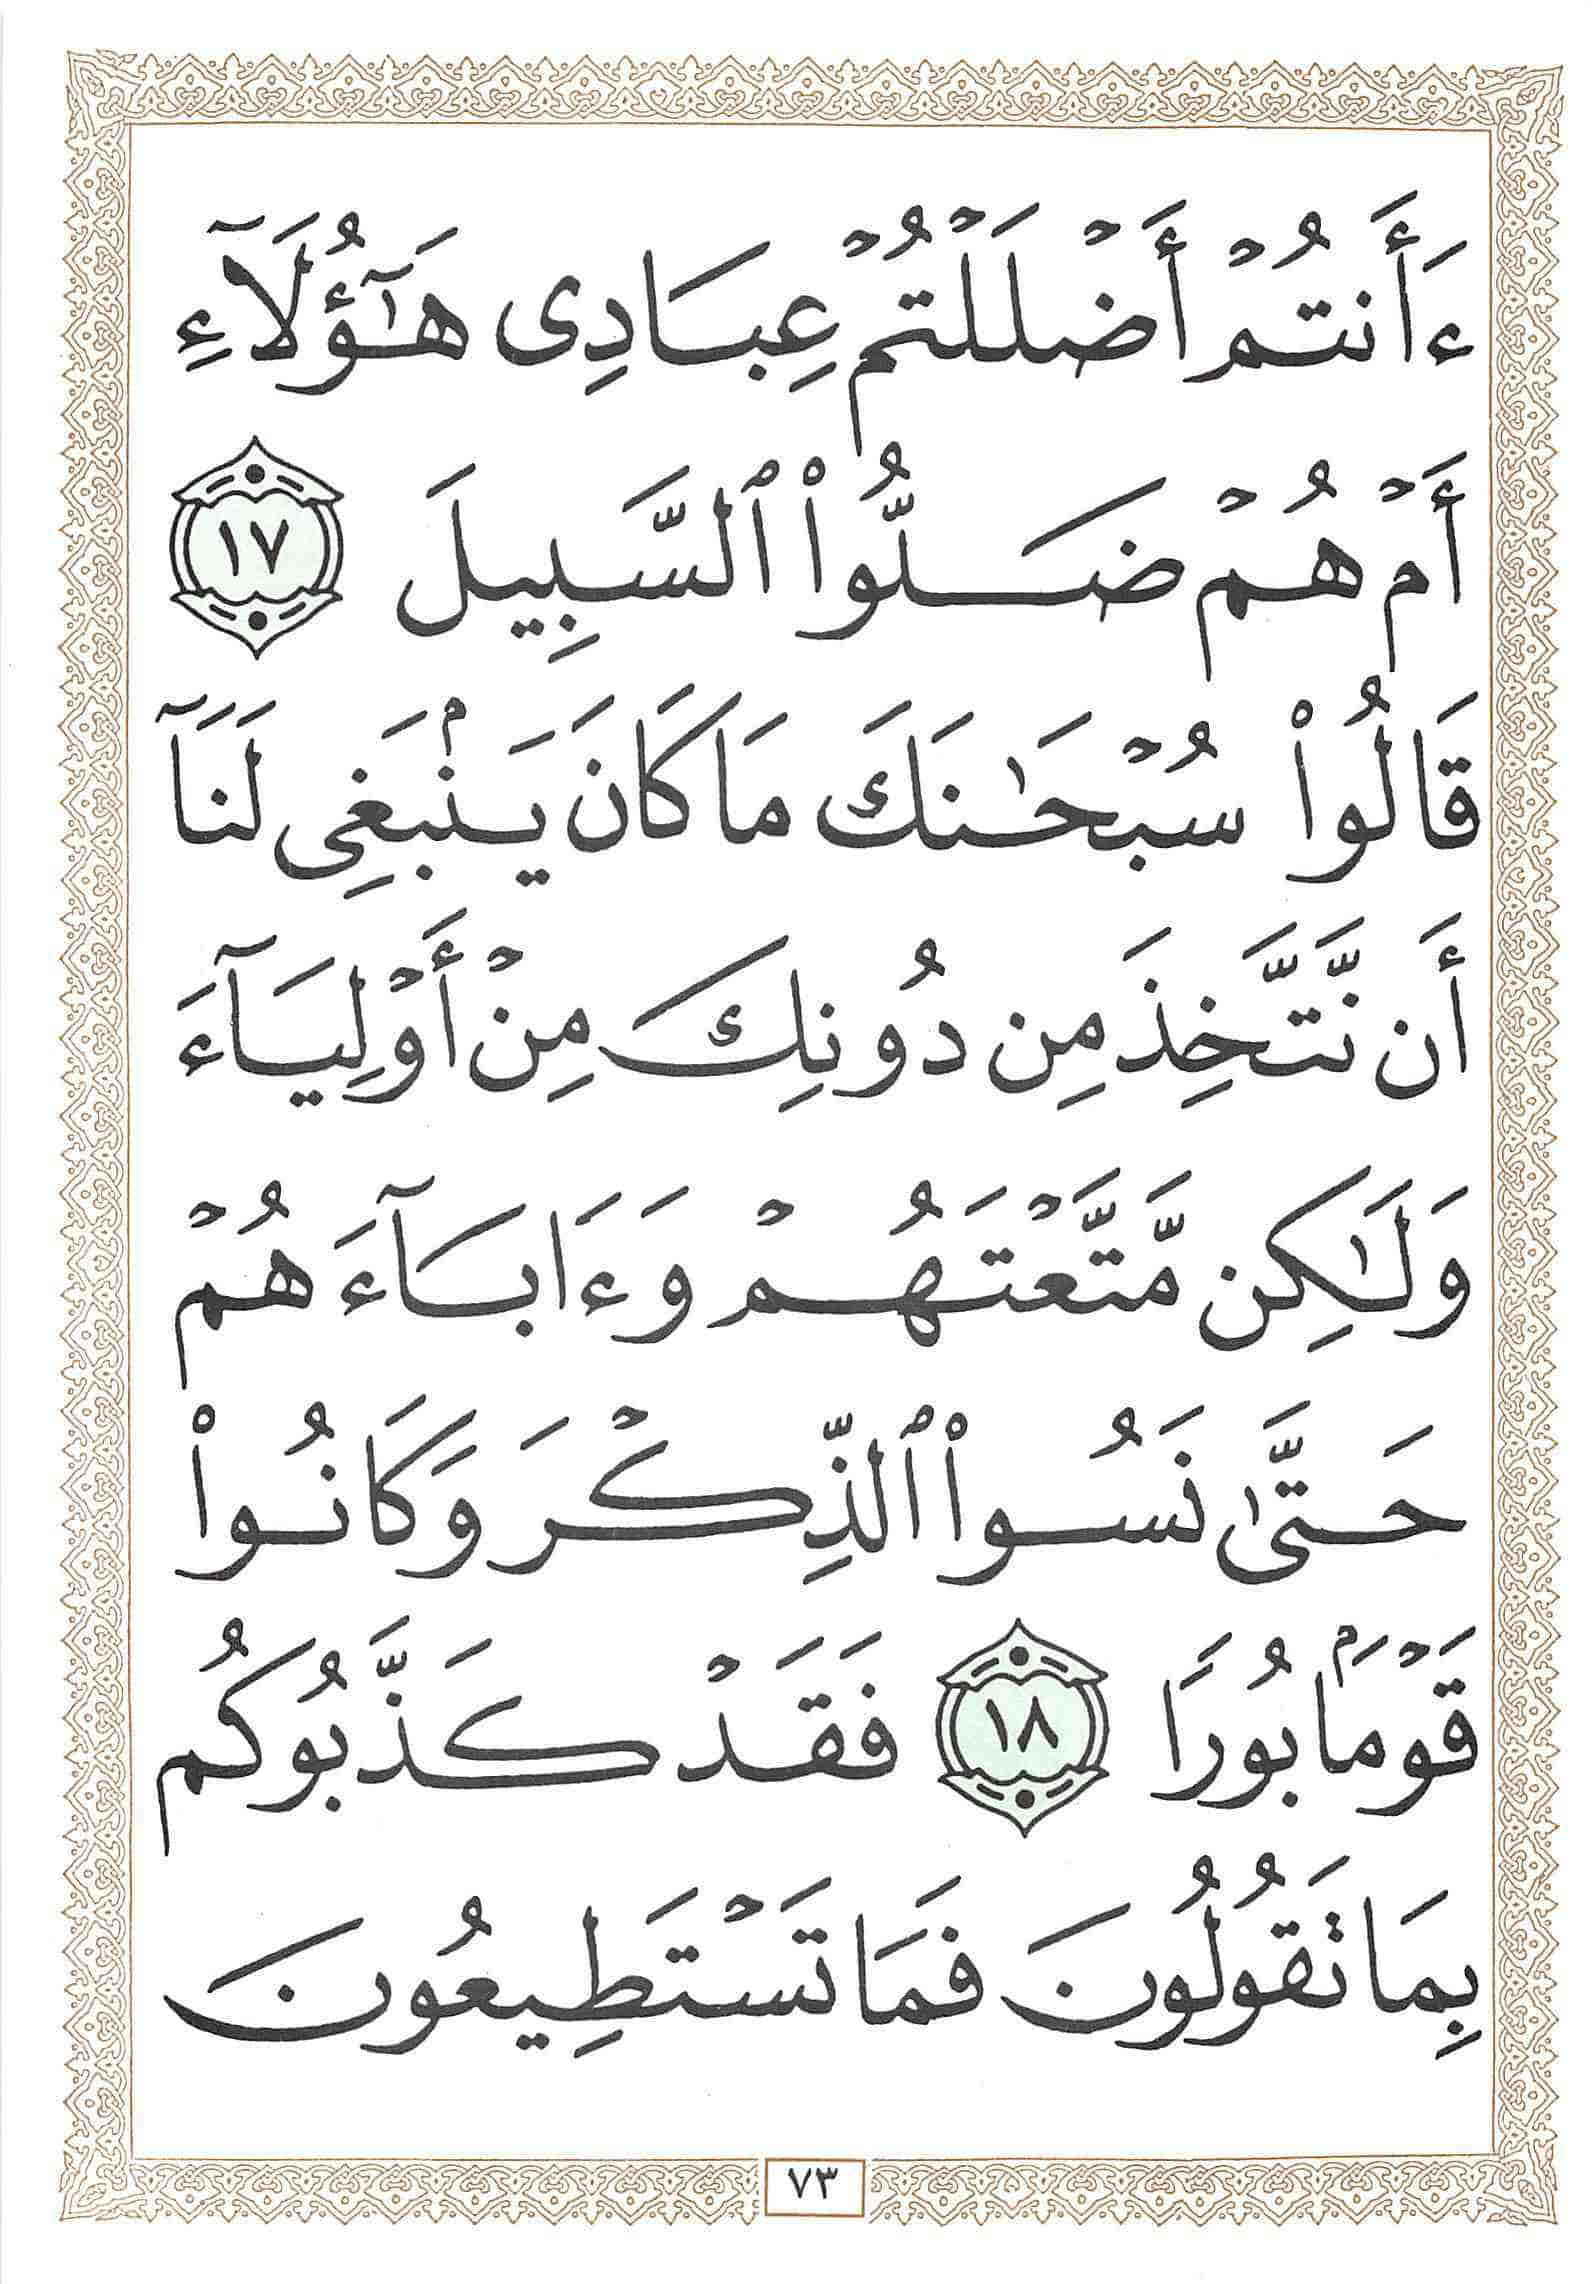 ءَأَنتُمْ أَضْلَلْتُمْ عِبَادِى هَـٰٓؤُلَآءِ
أَمْ هُمْ ضَلُّوا۟ ٱلسَّبِيلَ ١٧
قَالُوا۟ سُبْحَـٰنَكَ مَا كَانَ يَنۢبَغِى لَنَآ
أَن نَّتَّخِذَ مِن دُونِكَ مِنْ أَوْلِيَآءَ
وَلَـٰكِن مَّتَّعْتَهُمْ وَءَابَآءَهُمْ
حَتَّىٰ نَسُوا۟ ٱلذِّكْرَ وَكَانُوا۟
قَوْمَۢا بُورًا ١٨ فَقَدْ كَذَّبُوكُم
بِمَا تَقُولُونَ فَمَا تَسْتَطِيعُونَ
٧٣